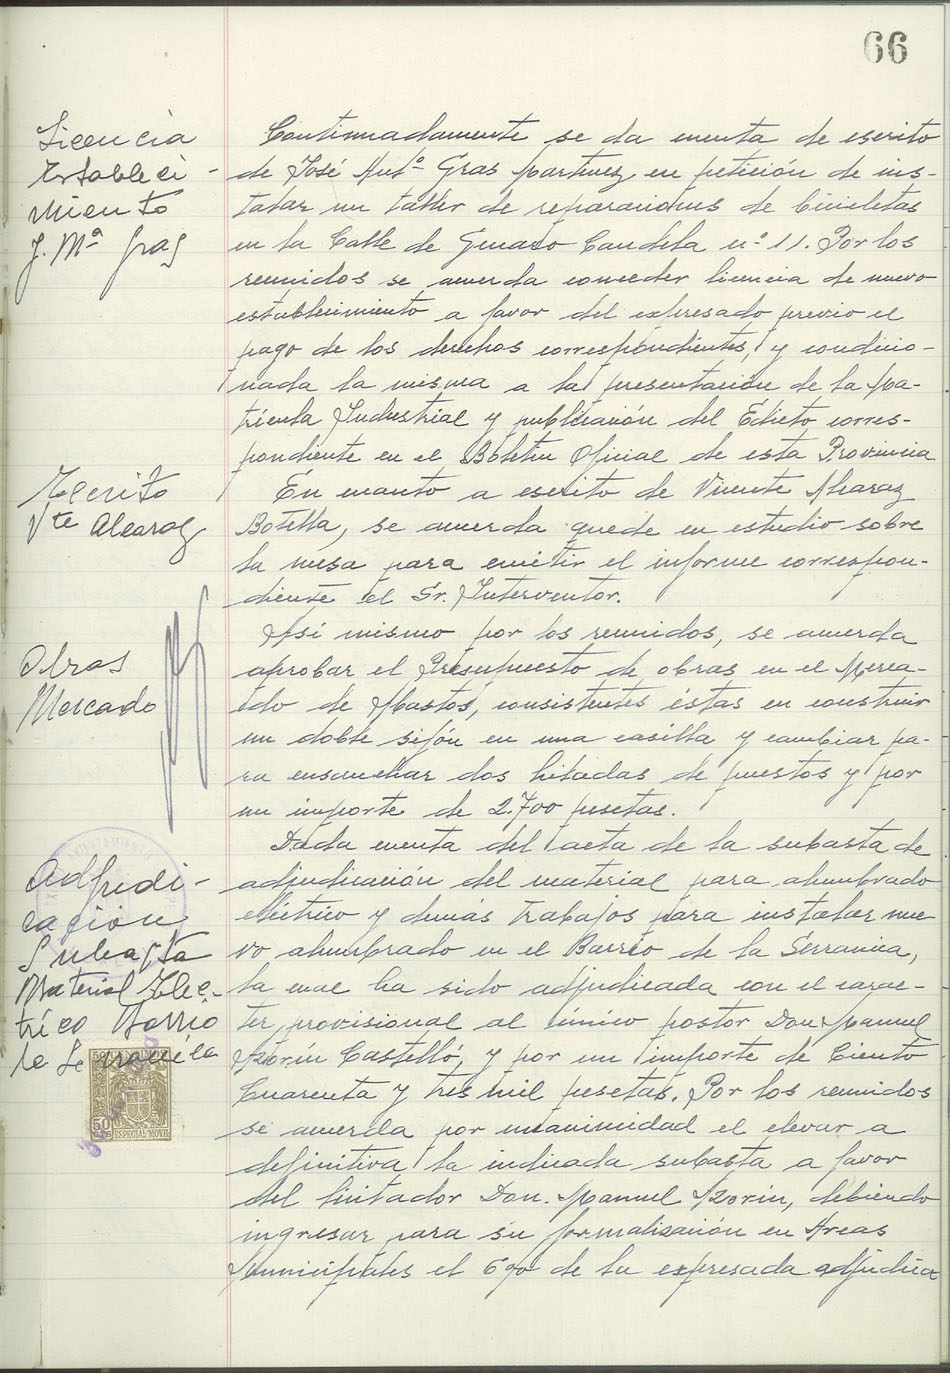 66
Licencia
Estableci-
miento
J. Mª Gras
Continuadamente se da cuenta de escrito
de José Antº Gras Martinez en petición de ins-
talar un taller de reparaciones de bicicletas
en la Calle de Genaro Candela nº 11. Por los
reunidos se acuerda conceder licencia de nuevo
establecimiento a favor del expresado previo el
pago de los derechos correspondientes, y condicio-
nada la misma a la presentación de la Ma-
trícula Industrial y publicación del Edicto corres-
pondiente en el Boletin Oficial de esta Provincia
Escrito
Vte Alcaraz
En cuanto a escrito de Vicente Alcaraz
Botella, se acuerda quede en estudio sobre
la mesa para emitir el informe correspon-
diente el Sr. Interventor.
Obras
Mercado
Así mismo por los reunidos, se acuerda
aprobar el Presupuesto de obras en el Merca-
do de Abastos, consistentes éstas en construir
un doble sifón en una casilla y cambiar pa-
ra ensanchar dos hiladas de puestos y por
un importe de 2.700 pesetas.
Adjudi-
cación
Subasta
Material Eléc-
trico Barrio
la Serranica
Dada cuenta del acta de la subasta de
adjudicación del material para alumbrado
eléctrico y demás trabajos para instalar nue
vo alumbrado en el Barrio de la Serranica,
la cual ha sido adjudicada con el carac-
ter provisional al único postor Don Manuel
Azorín Castelló, y por un importe de Ciento
Cuarenta y tres mil pesetas. Por los reunidos
se acuerda por unanimidad el elevar a
definitiva la indicada subasta a favor
del licitador Don. Manuel Azorín, debiendo
ingresar para su formalización en Arcas
Municipales el 6% de la expresada adjudica
50
CTS
ESPECIAL MOVIL